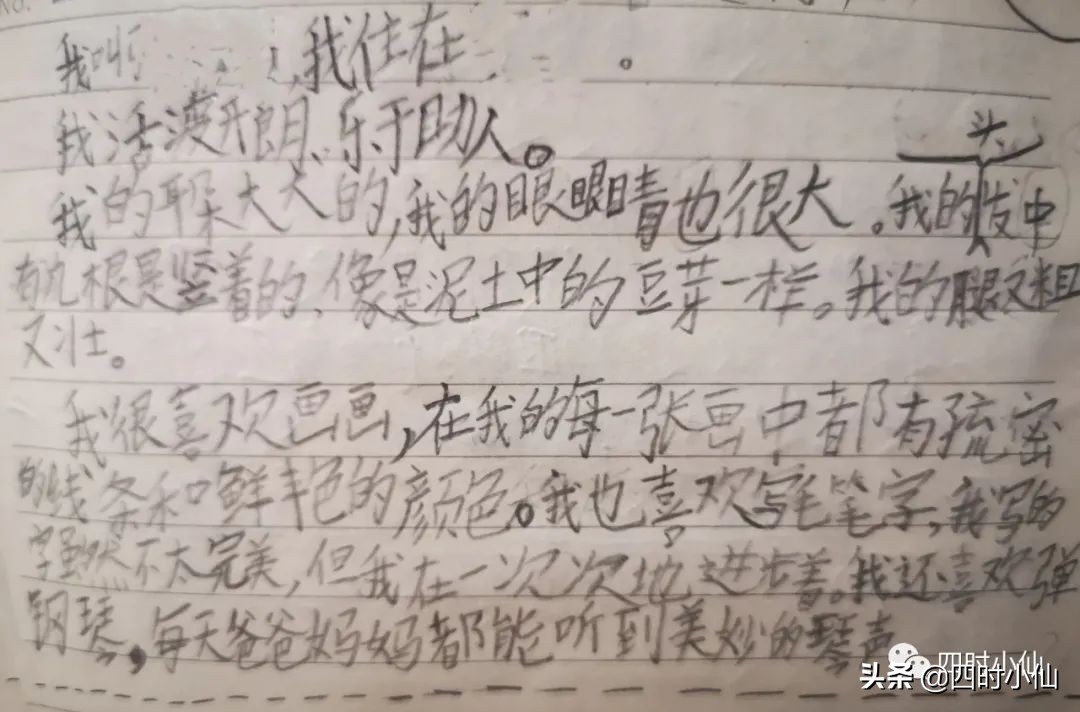 No.
我叫 ，我住在 。
我活泼开朗、乐于助人。
我的耳朵大大的，我的眼眼睛也很大。我的头发中
有九根是竖着的、像是泥土中的豆芽一样。我的腿又粗
又壮。
我很喜欢画画，在我的每一张画中都有疏密
的线条和鲜艳的颜色。我也喜欢写毛笔字，我写的
字虽然不太完美，但我在一次次地进步着。我还喜欢弹
钢琴，每天爸爸妈妈都能听到美妙的琴声
四时小仙
头条 @四时小仙